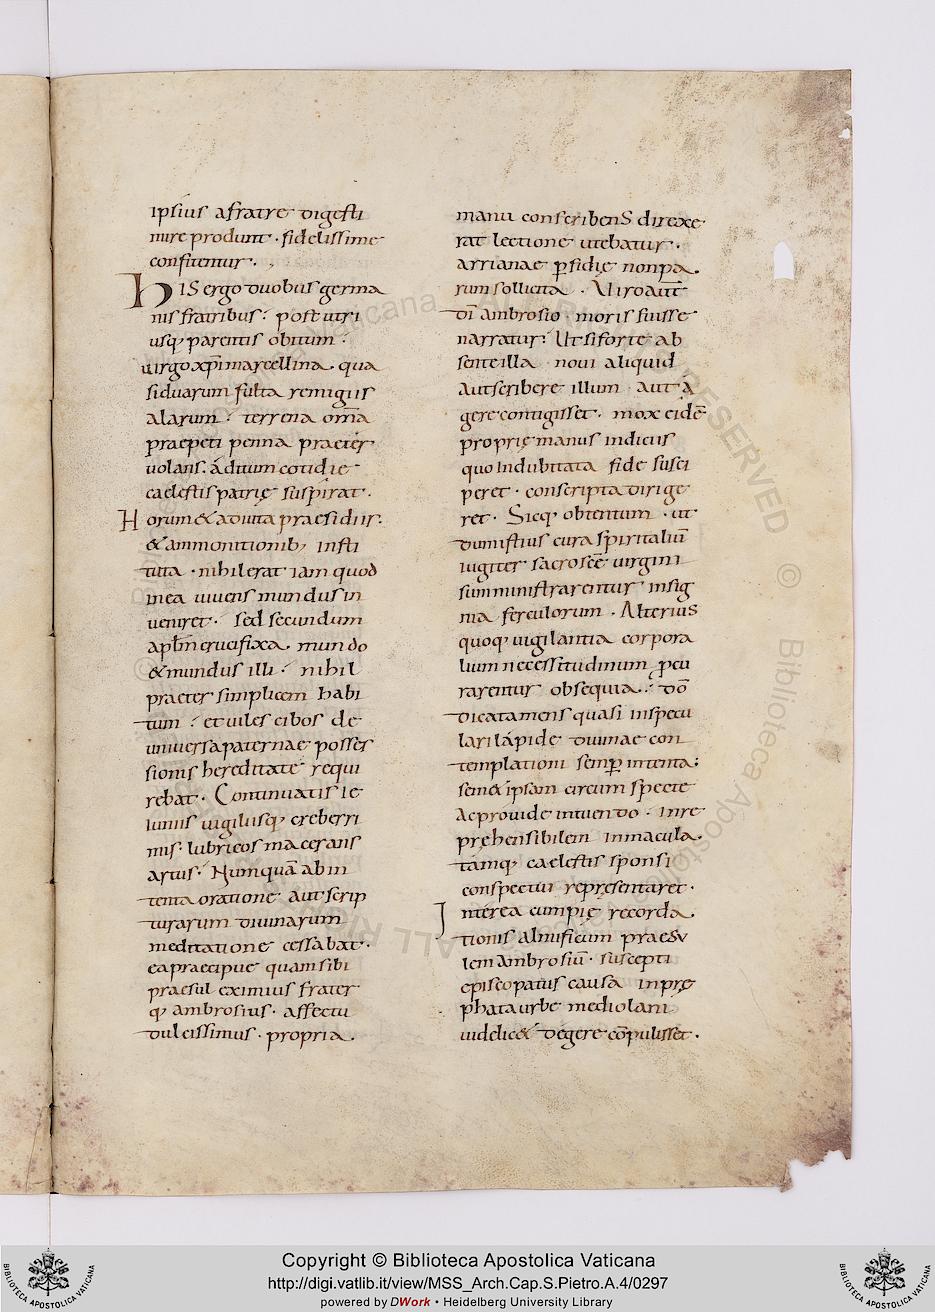 ipsius afratre digesti
mire produnt · fidelissime
confitentur ·
HIS ergo duobus germa
nis fratribus : post utri
usq; parentis obitum :
uirgo xp̄i marcellina · qua
si duarum fulta remigiis
alarum : terrena om̄a
praepeti penna praeter
uolans · áditum cotidie
caelestis patrię suspirat ·
Horum & adiuta praesidiis ·
& ammonitionib; insti
tuta · nihil erat iam quod
in ea uiuens mundus in
ueniret · sed secundum
apl̄m crucifixa · mundo
& mundus illi : nihil
praeter simplicem habi
tum : et uiles cibos de
uniuersa paternae posses
sionis hereditate requi
rebat · Continuatis ie
iuniis uigiliisq; creberri
mis · lubricos macerans
artus · Numquā ab in
tenta oratione aut scrip
turarum diuinarum
meditatione cessabat ·
ea praecipue quam sibi
praesul eximius frater
q; ambrosius · affectu
dulcissimus · propria ·
manu conscribenS direxe
rat lectione utebatur ·
arrianae ꝑfidię non pa ·
rum sollicita · Uiro aut̄
dī ambrosio · moris fuisse
narratur : Ut si forte ab
sente illa noui aliquid
aut scribere illum aut a
gere contigisset · mox eidē
proprię manus indiciis
quo indubitata fide susci
peret · conscripta dirige
ret · Sicq; obtentum · ut
dum istius cura spiritaliū
iugiter sacroscē uirgini
sumministrarentur insig
nia ferculorum · Alterius
quoq; uigilantia corpora
lium necessitudinum ꝑcu
rarentur obsequia : dō
dicata mens quasi inspecu
lari lápide diuinae con
templationi semꝑ intenta :
sem& ipsam circum specte
ac próuide intuendo · inre
pręhensibilem inmacula ·
tamq; caelestis sponsi
conspectui repręsentaret ·
Interea cum pię recorda ·
tionis almificum praesu
lem ambrosiū · suscepti
episcopatus causa in prę
phata urbe mediolani
uidelic& dégere cōpulisset ·
Copyright © Biblioteca Apostolica Vaticana
http://digi.vatlib.it/view/MSS_Arch.Cap.S.Pietro.A.4/0297
powered by DWork • Heidelberg University Library